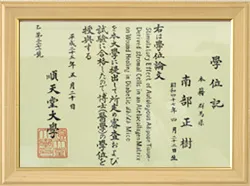 學位記
本籍 群馬県
南部正樹
昭和四十六年四月二十三日
右は學位論文
Stimulatory Effect of Autologous Adipose Tissue-
Derived Stromal Cells in an Atelocollagen Matrix
on Wound Healing in Diabetic db/db Mice
を本大學に提出して所定の審査および
試験に合格したので博士(醫學)の學位を
授與する
平成二十三年五月二十日
順天堂大學